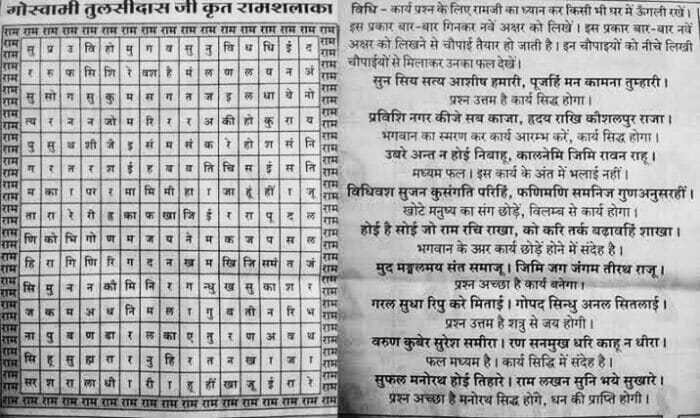 गोस्वामी तुलसीदास जी कृत रामशलाका
राम राम राम राम राम राम राम राम राम राम राम राम राम राम राम राम राम
राम सु प्र उ वि हो मु ग व सु नु वि ध धि ई द राम
राम र रु फ सि शि रे वश है मं ल ण ल य न अं राम
राम सु सो ग सु कु म स ग त ज इ ल धा वे नो राम
राम त्य र न न जो म रि र र अ की हो कु रा य राम
राम पु सु थ शी जे इ सं म सं क रे हो श सं नि राम
राम ग र त र श ई ह ब व ति चि स इं स ति राम
राम म का ा प र मा मि मी हा ा जा हूं हीं ा जू राम
राम ता रा रे री ह का फ खा जि ई र रा पू द ल राम
राम णि को भि गो ण म ज य ने म क ज प स ल राम
राम हि रा गि णि रि ग द न ख म खि जि मसं त जं राम
राम सि मु न न कौ मि नि र ग न्धु ख सु का श र राम
राम ज क म अ ध नि म ल ा गु ब ती न रि भ राम
राम ना पु ब ण ढा र ल का ए तु र ण अ व थ राम
राम सि हू सु ह्म रा र नु हि र त न खा जा राम
राम सर श रा ला धी ा री ा हू हीं खा जू ई रा रे राम
राम राम राम राम राम राम राम राम राम राम राम राम राम राम राम राम राम
विधि - कार्य प्रश्न के लिए रामजी का ध्यान कर किसी भी घर में ऊँगली रखें।
इस प्रकार बार-बार गिनकर नवें अक्षर को लिखें। इस प्रकार बार-बार नवें
अक्षर को लिखने से चौपाई तैयार हो जाती है। इन चौपाइयों को नीचे लिखी
चौपाईयों से मिलाकर उनका फल देखें।
सुन सिय सत्य आशीष हमारी, पूजहिं मन कामना तुम्हारी।
प्रश्न उत्तम है कार्य सिद्ध होगा।
प्रविशि नगर कीजे सब काजा, हृदय राखि कौशलपुर राजा।
भगवान का स्मरण कर कार्य आरम्भ करें, कार्य सिद्ध होगा।
उबरे अन्त न होई निवाहू, कालनेमि जिमि रावन राहू।
मध्यम फल। इस कार्य के अंत में भलाई नहीं।
विधिवश सुजन कुसंगति परिहिं, फणिमणि समनिज गुणअनुसरहीं।
खोटे मनुष्य का संग छोड़ें, विलम्ब से कार्य होगा।
होई है सोई जो राम रचि राखा, को करि तर्क बढावहिं शाखा।
भगवान के ऊपर कार्य छोड़ें होने में संदेह है।
मुद मङ्गलमय संत समाजू। जिमि जग जंगम तीरथ राजू।
प्रश्न अच्छा है कार्य बनेगा।
गरल सुधा रिपु करे मिताई। गोपद सिन्धु अनल सितलाई।
प्रश्न उत्तम है शत्रु से जय होगी।
वरुण कुबेर सुरेश समीरा। रण सनमुख धरि काहू न धीरा।
फल मध्यम है। कार्य सिद्धि में संदेह है।
सुफल मनोरथ होई तिहारे। राम लखन सुनि भये सुखारे।
प्रश्न अच्छा है मनोरथ सिद्ध होगे, धन की प्राप्ति होगी।